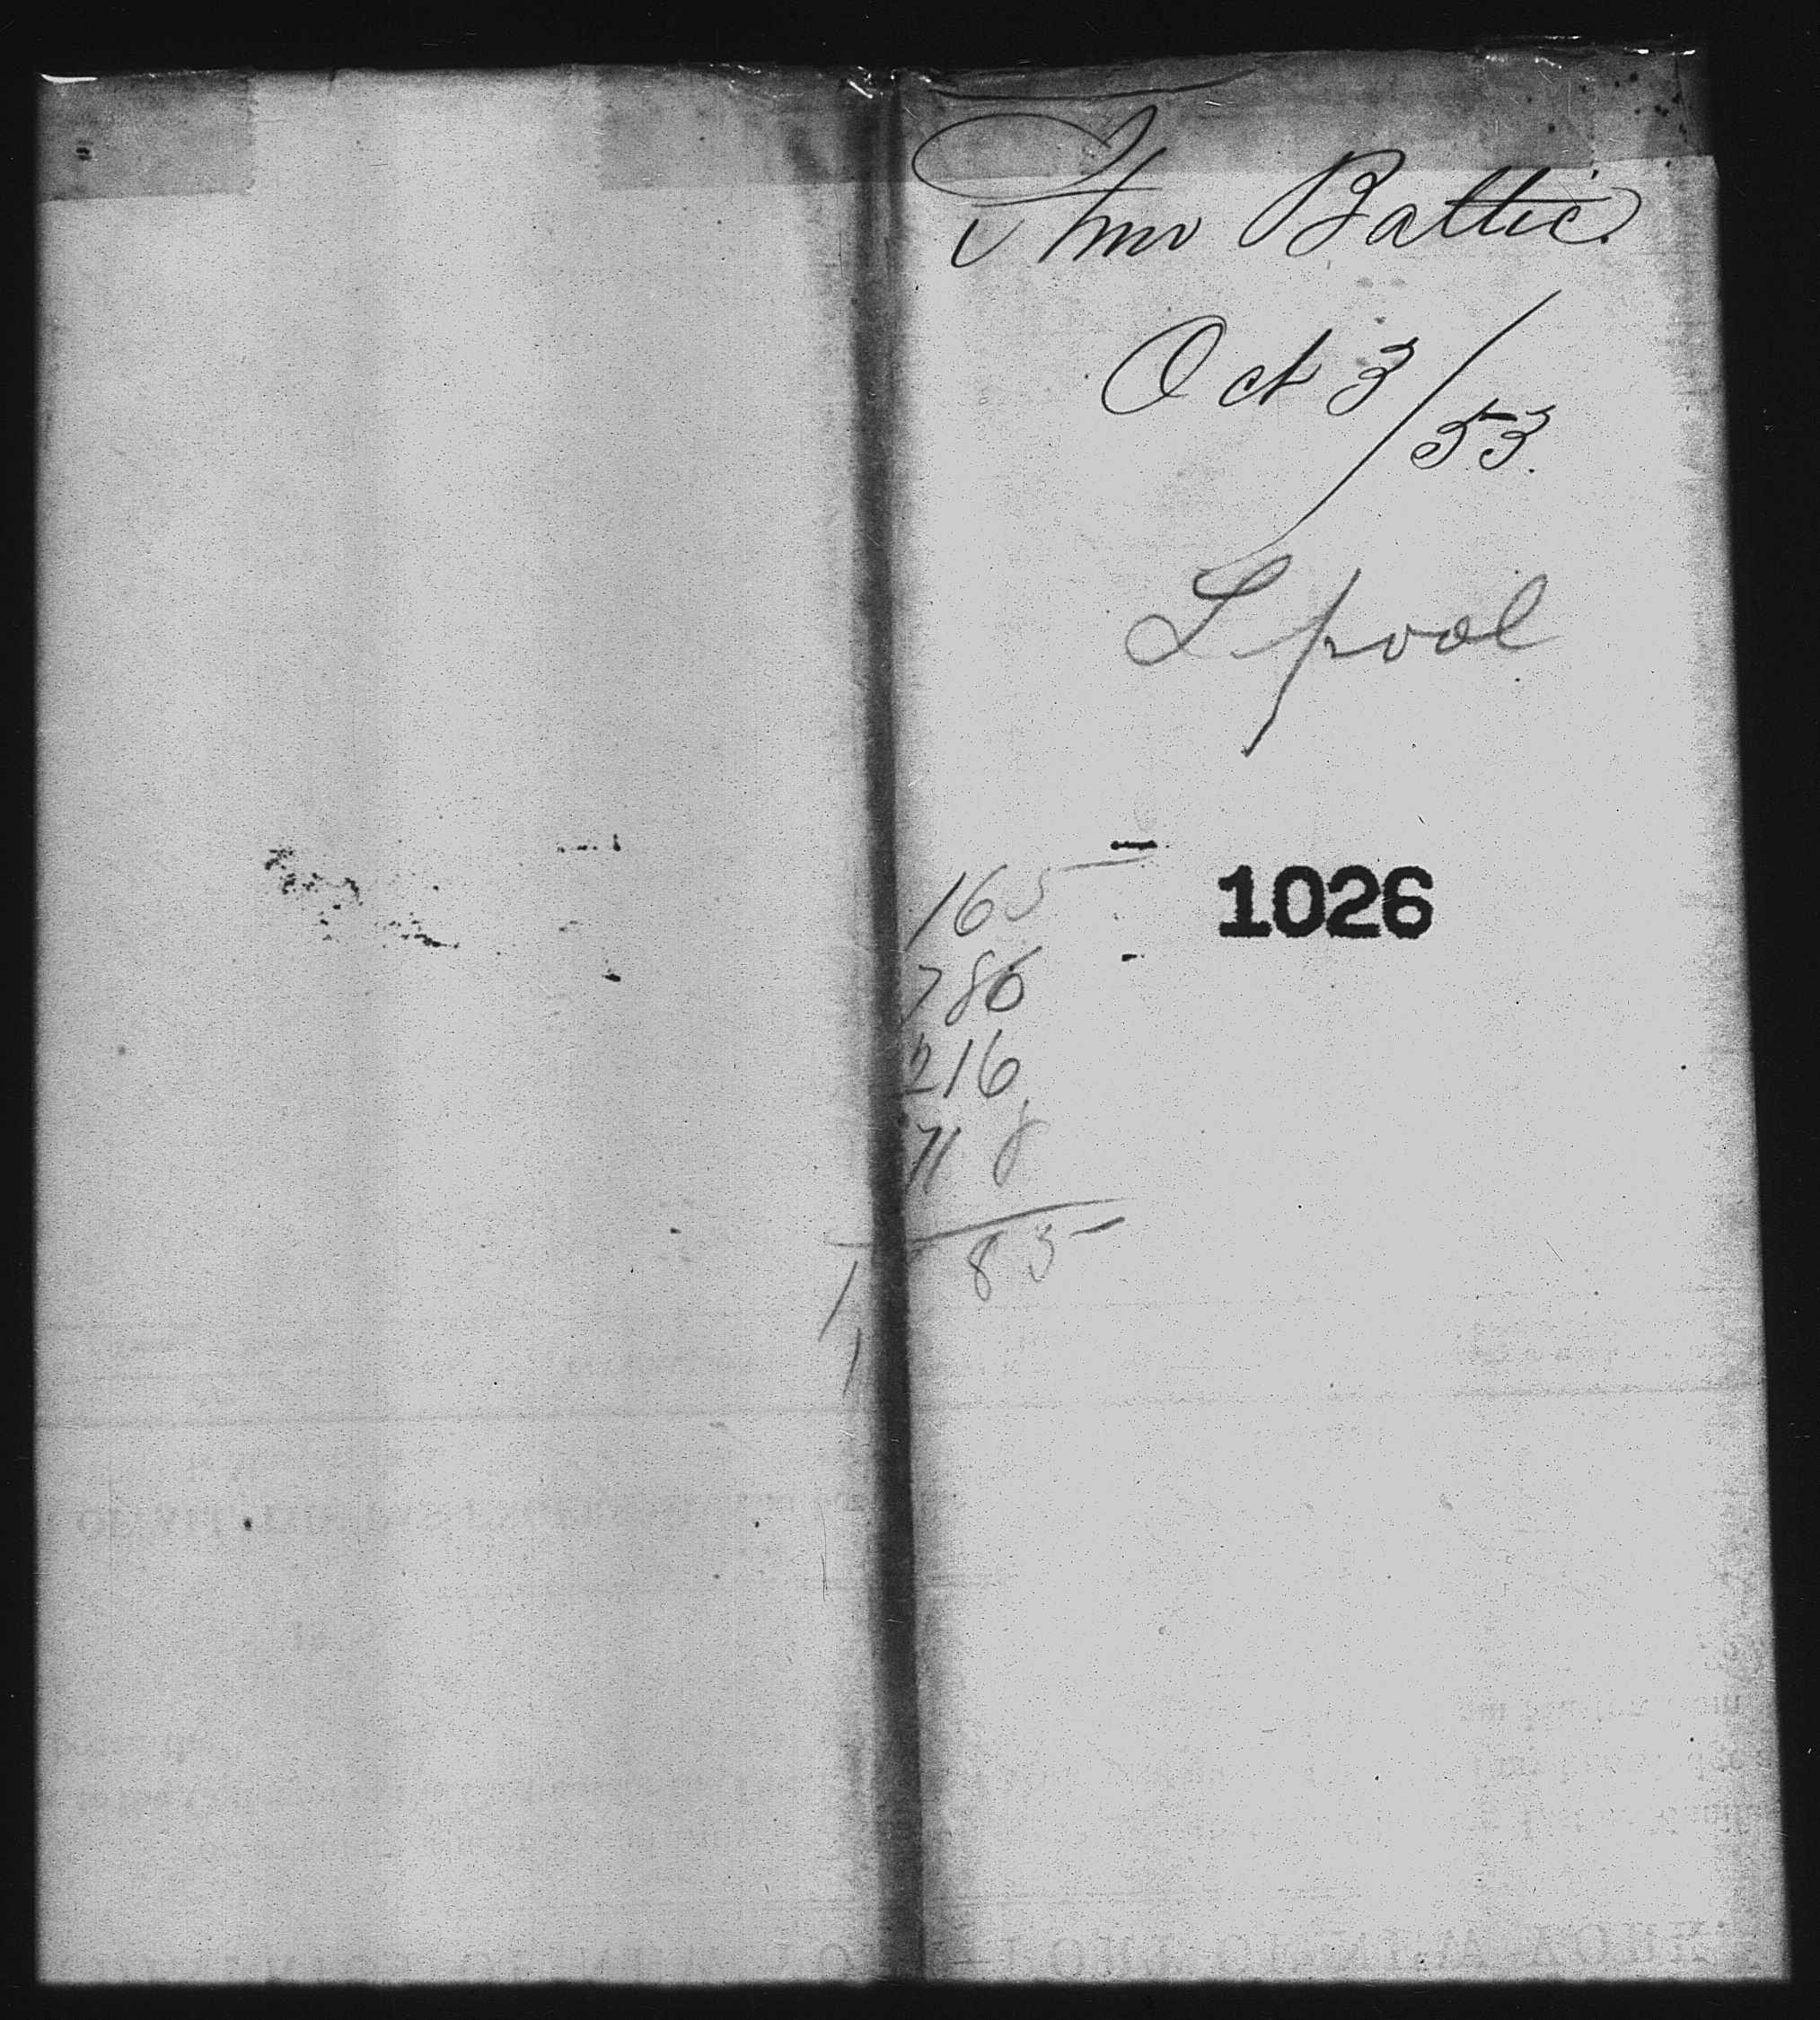 Stmr Baltic.
Oct 3/53.
L pool
1026
165
786
216
718
1 85
1